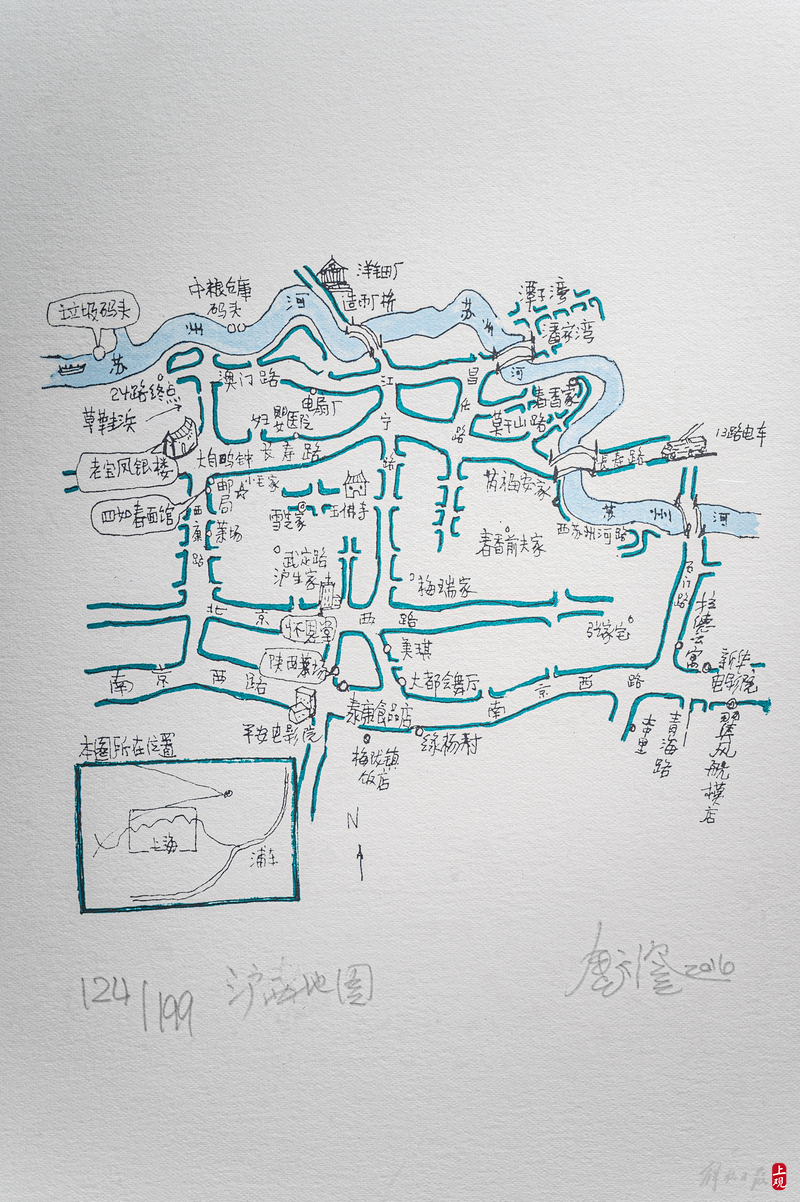 洋钿厂
造币厂桥
中粮仓库
码头
垃圾码头
苏
州
河
苏
州
河
潭子湾
潘家湾
24路终点
澳门路
江
宁
路
昌
路
春香家
草鞋浜
电扇厂
妇婴医院
莫干山路
13路电车
老宝凤银楼
大自鸣钟
长寿路
长寿路
邮局
小毛家
四如春面馆
西康路
菜场
雪芝家
玉佛寺
芮福安家
西苏州河路
苏
州
河
春香前夫家
武定路
沪生家
梅瑞家
石门路
拉德公寓
北
京
西
路
怀恩堂
张家宅
美琪
陕西菜场
大都会舞厅
新华
电影院
南
京
西
路
南
京
西
路
泰康食品店
平安电影院
绿杨村
梅龙镇
饭店
青海路
翼风航模店
本图所在位置
上海
浦东
N
124/199
沪生地图
2016
解放日报
上观